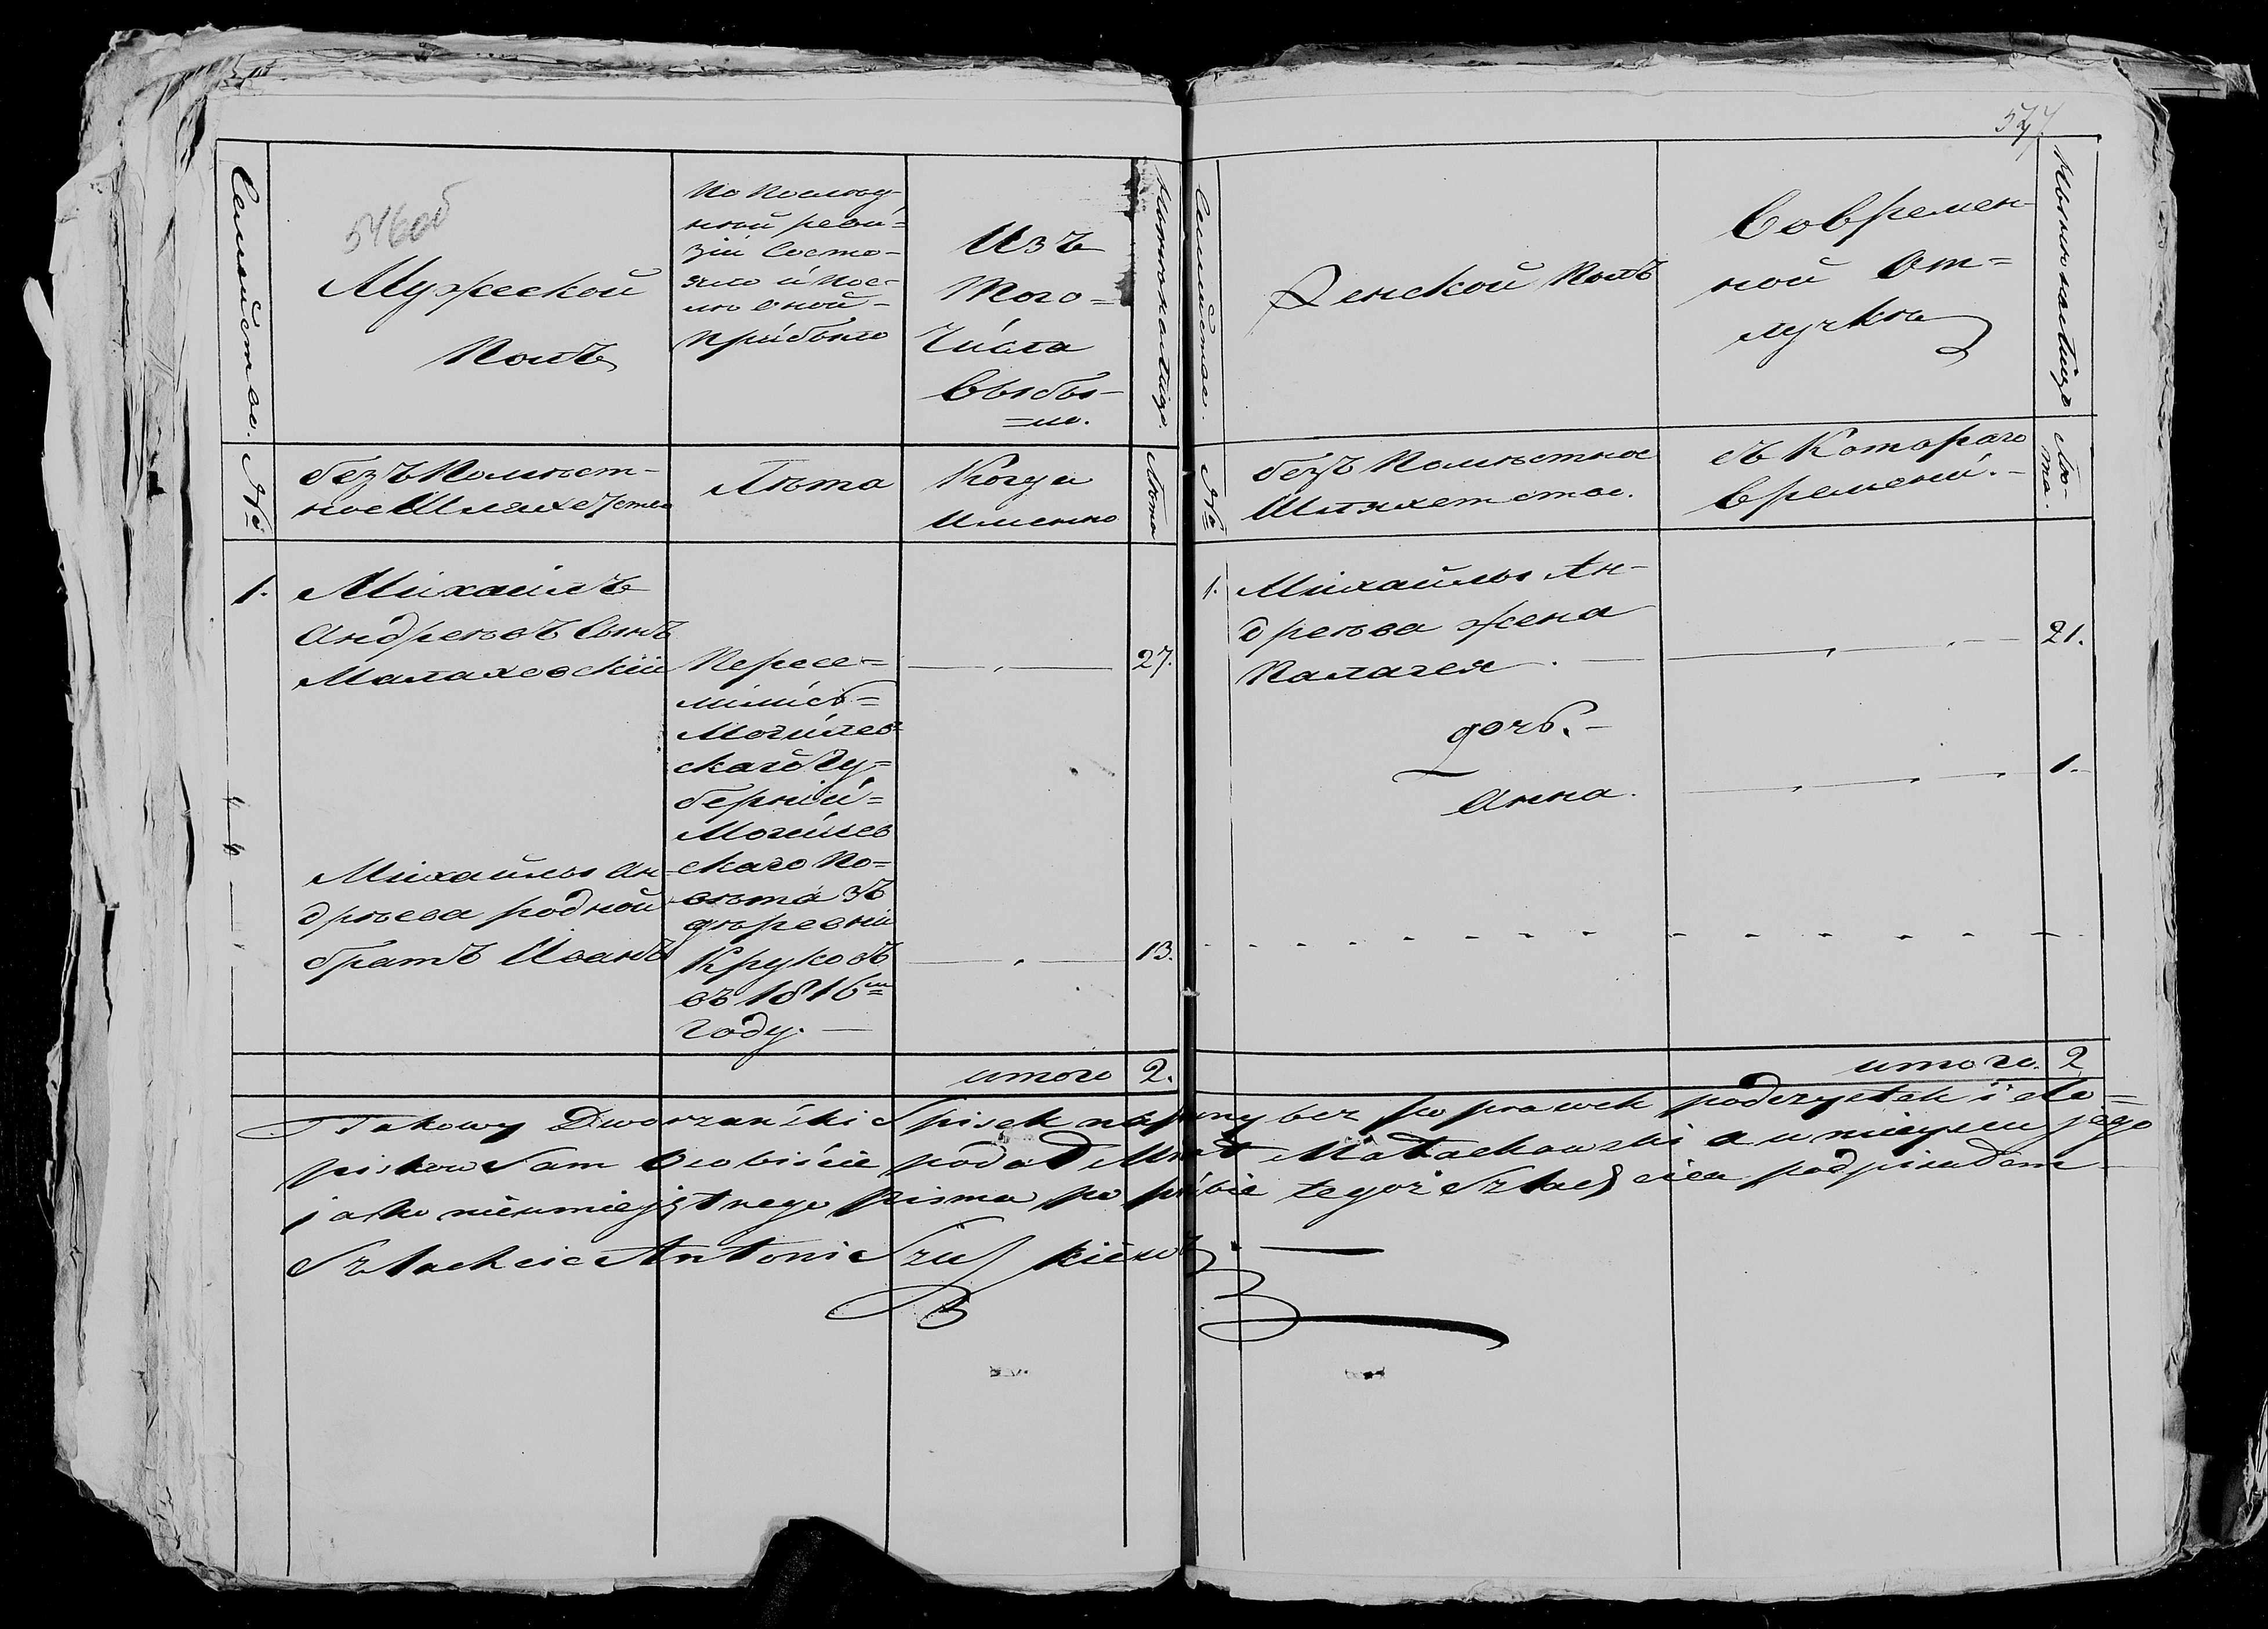 546об
Семейство.
Мужеской
Полъ
По послѣд-
ней реви=
зіи состо-
яло и пос-
лѣ оной-
прибыло
Изъ
того=
числа
выбы-
=ло.
Нынѣ налицо.
№
безъ Помѣст-
ное Шляхетство
Лѣта
Когда
именно
Лѣта
1. Михаилъ
Андреевъ Сынъ
Малаховскій
27.
Пересе=
лились=
Могилев=
скаго Гу=
берніи=
Могилев
скаго По=
вѣта зъ
дѣревни
Круковъ
въ 1816м
году. —
Михайлы Ан-
дрѣева родной
братъ Иванъ
13.
итого 2.
547
Семейство.
Женской Полъ
Во времен-
ной От=
лучкѣ
Нынѣ налицо
№
безъ Помѣстное
Шляхетство.
съ Котораго
времени. -
Лѣ-
та.
1. Михайлы Ан-
дреева жена
Палагея 21.
дочь. -
Анна. 1.
итого. 2
Takowy Dworzański Spisek napisany bez poprawek podczystek i do=
piskow sam Osobiście podał Michał Małachowski a w imieniu jego
jako nieumiejętnego pisma po proźbie tegoż Szlachcica podpisałem
Szlachcic Antoni